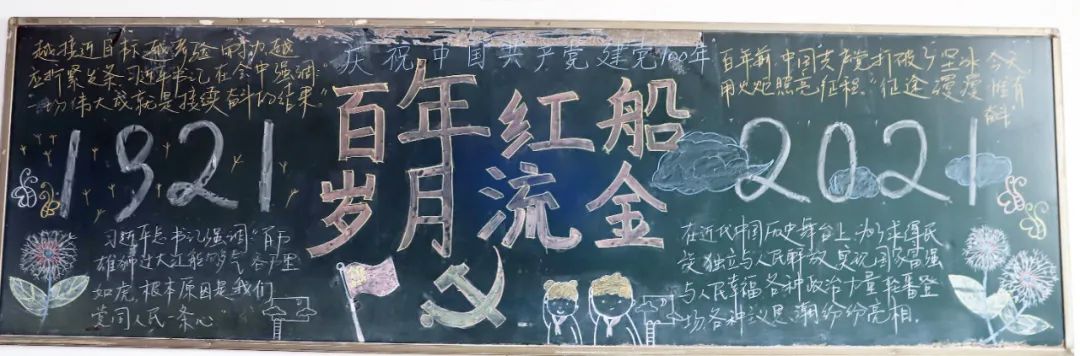 庆祝中国共产党建党100年
百年红船
岁月流金
1921
2021
越接近目标越考验
习近平书记在会中强调:"
一切伟大成就是接续奋斗的结果"
百年前,中国共产党打破了坚冰,今天
用火炬照亮征程."征途漫漫惟有
奋斗
习近平总书记强调"百万
雄师过大江能够气吞万里
如虎,根本原因是我们
党同人民一条心"
在近代中国历史舞台上,为了求得民
族独立与人民解放,实现国家富强
与人民幸福,各种政治力量轮番登
场,各种议思潮纷纷亮相.